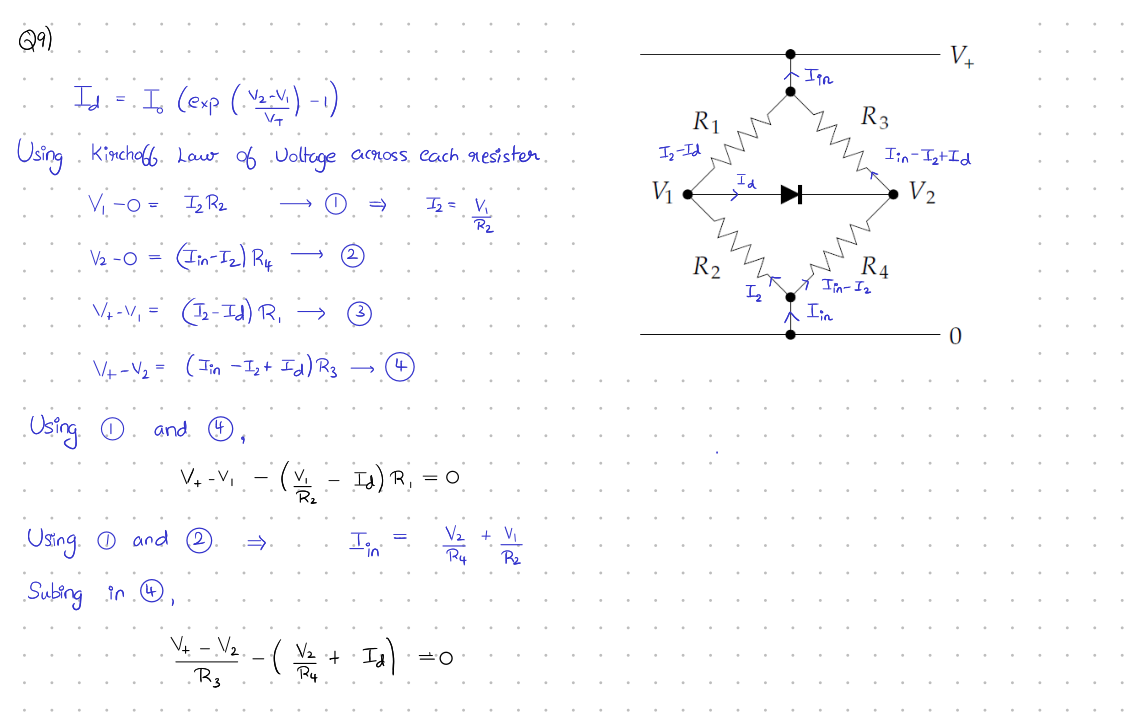 Q9)
I_d = I_o (exp (V_2-V_1/V_T) -1)
Using Kirchoff Law of Voltage across each resister
V_1 -0 = I_2R_2 → ① ⇒ I_2 = V_1/R_2
V_2 -0 = (I_in-I_2) R_4 → ②
V_+-V_1 = (I_2-I_d) R_1 → ③
V_+-V_2 = (I_in -I_2+ I_d) R_3 → ④
Using ① and ④,
V_+-V_1 - (V_1/R_2 - I_d) R_1 = 0
Using ① and ② ⇒ I_in = V_2/R_4 + V_1/R_2
Subing in ④,
V_+ - V_2/R_3 - (V_2/R_4 + I_d) =0
V_+
I_in
R_1
R_3
I_2-I_d
I_in-I_2+I_d
V_1
I_d
V_2
R_2
R_4
I_2
I_in-I_2
I_in
0